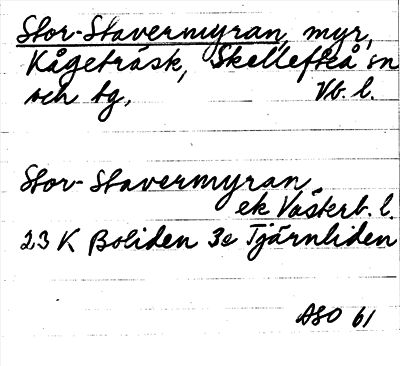 Stor-Stavermyran, myr,
Kågeträsk, Skellefteå sn
och tg, Vb. l.
Stor-Stavermyran
ek Västerb. l.
23 K Boliden 3e Tjärnliden
ASO 61